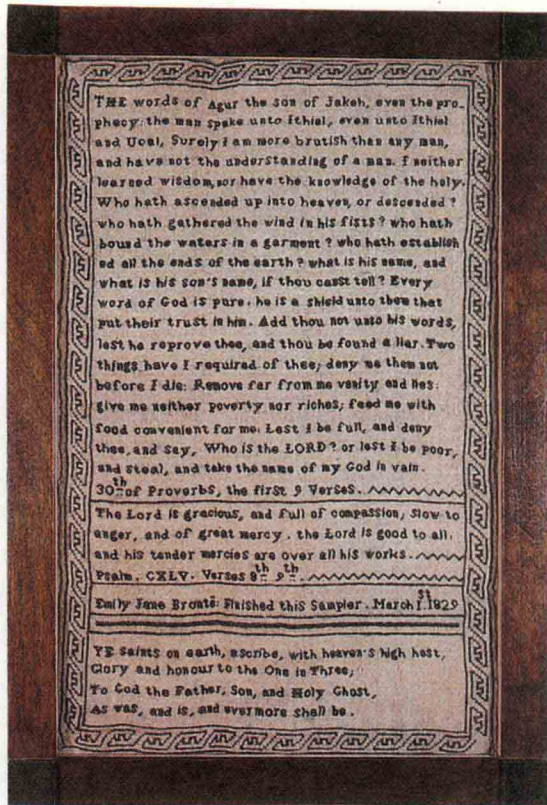 THE words of Agur the son of Jakeh, even the pro-
phecy: the man spake unto Ithiel, even unto Ithiel
and Ucal, Surely I am more brutish than any man,
and have not the understanding of a man. I neither
learned wisdom, nor have the knowledge of the holy.
Who hath ascended up into heaven, or descended?
who hath gathered the wind in his fists? who hath
bound the waters in a garment? who hath establish
ed all the ends of the earth? what is his name, and
what is his son's name, if thou canst tell? Every
word of God is pure. he is a shield unto them that
put their trust in him. Add thou not unto his words,
lest he reprove thee, and thou be found a liar. Two
things have I required of thee; deny me them not
before I die: Remove far from me vanity and lies:
give me neither poverty nor riches; feed me with
food convenient for me: Lest I be full, and deny
thee, and say, Who is the LORD? or lest I be poor,
and steal, and take the name of my God in vain.
30th of Proverbs, the first 9 Verses.
The Lord is gracious, and full of compassion; slow to
anger, and of great mercy. the Lord is good to all:
and his tender mercies are over all his works.
Psalm. CXLV. Verses 8th 9th.
Emily Jane Brontë: Finished this Sampler. March 1st 1829
YE saints on earth, ascribe, with heaven's high host,
Glory and honour to the One in Three;
To God the Father, Son, and Holy Ghost,
As was, and is, and evermore shall be.